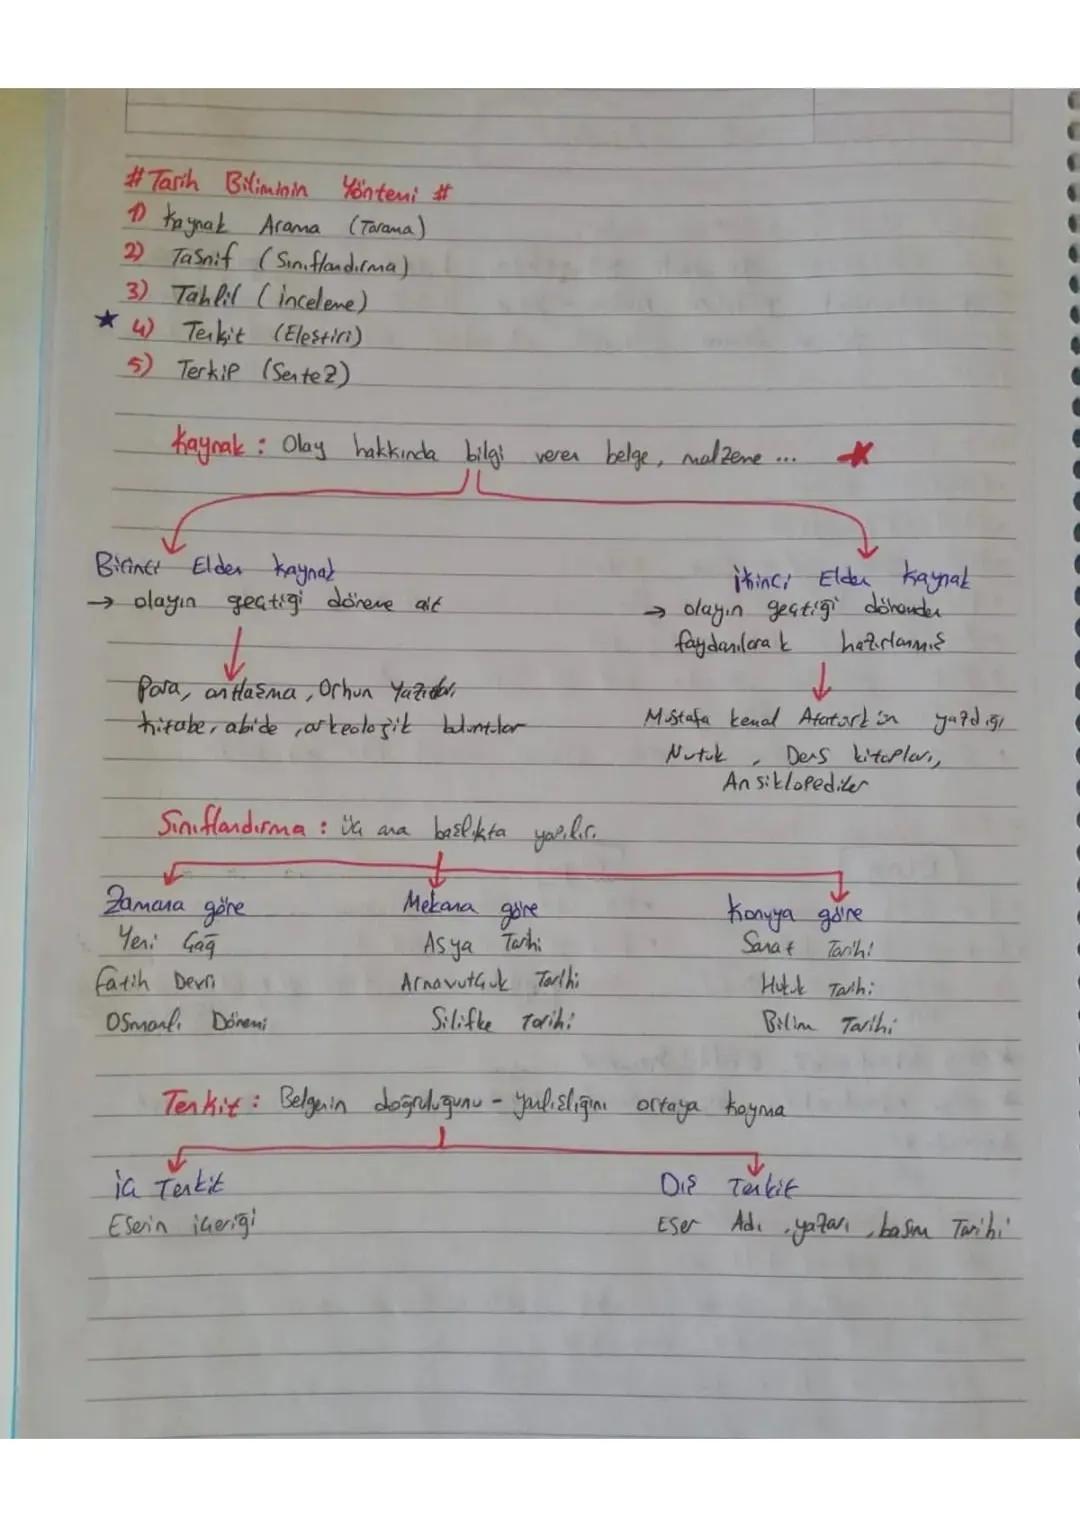 # Tarih Biliminin Yöntemi #
1) Kaynak Arama (Tarama)
2) Tasnif (Sınıflandırma)
3) Tahlil (İnceleme)
4) Tenkit (Eleştiri)
5) Terkip (Sentez)
Kaynak : Olay hakkında bilgi veren belge, malzeme ...
Birinci Elden Kaynak
→ olayın geçtiği döneme ait
Para, antlaşma, Orhun Yazıtları,
kitabe, abide, arkeolojik buluntular
İkinci Elden Kaynak
→ olayın geçtiği dönemden
faydanılarak hazırlanmış
Mustafa Kemal Atatürk'ün yazdığı
Nutuk, Ders kitapları,
Ansiklopediler
Sınıflandırma : üç ana başlıkta yapılır.
Zamana göre
Yeni Çağ
Fatih Devri
Osmanlı Dönemi
Mekana göre
Asya Tarihi
Arnavutçuk Tarihi
Silifke Tarihi
Konuya göre
Sanat Tarihi
Hukuk Tarihi
Bilim Tarihi
Tenkit : Belgenin doğruluğunu - yanlışlığını ortaya koyma
İç Tenkit
Eserin içeriği
Dış Tenkit
Eser Adı, yazarı, basım Tarihi